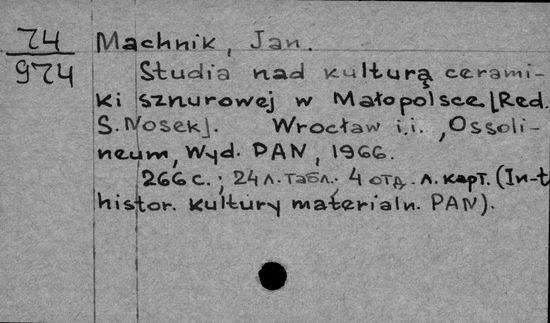 74
974
Machnik, Jan.
Studia nad kulturą cerami-
ki sznurowej w Małopolsce. [Red.
S. Nosek]. Wrocław i.i., Ossoli-
neum, Wyd. PAN, 1966.
266 с.; 24 л. табл.; 4 отд. л. карт. (In-t
histor. kultury materialn. PAN).